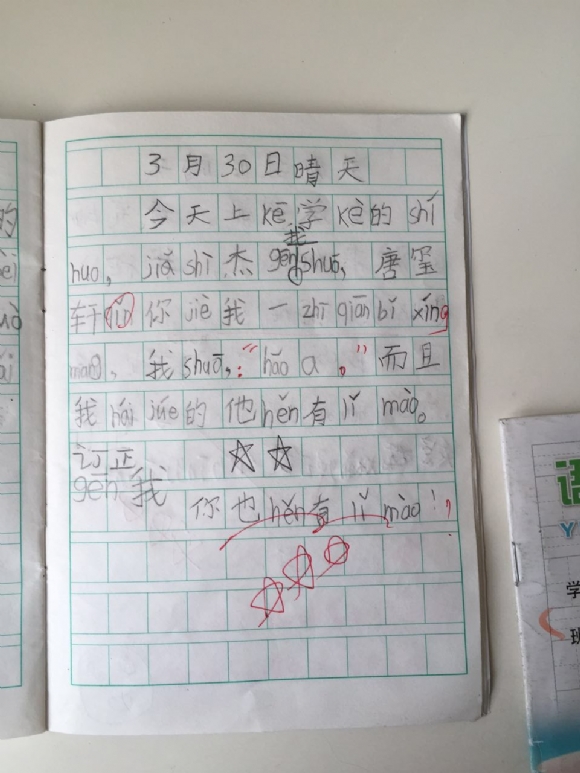 3月30日晴天
今天上kē学kè的shí
huo，jiǎ shì杰gēn我shuō，唐玺
轩 你jiè我一zhī qiān bǐ xíng
mang，我shuō，：“hǎo a。”而且
我hái júe的他hěn有lǐ mào。
订正
gēn我
你也hěn有lǐ mào！
的
语
Y
学
班